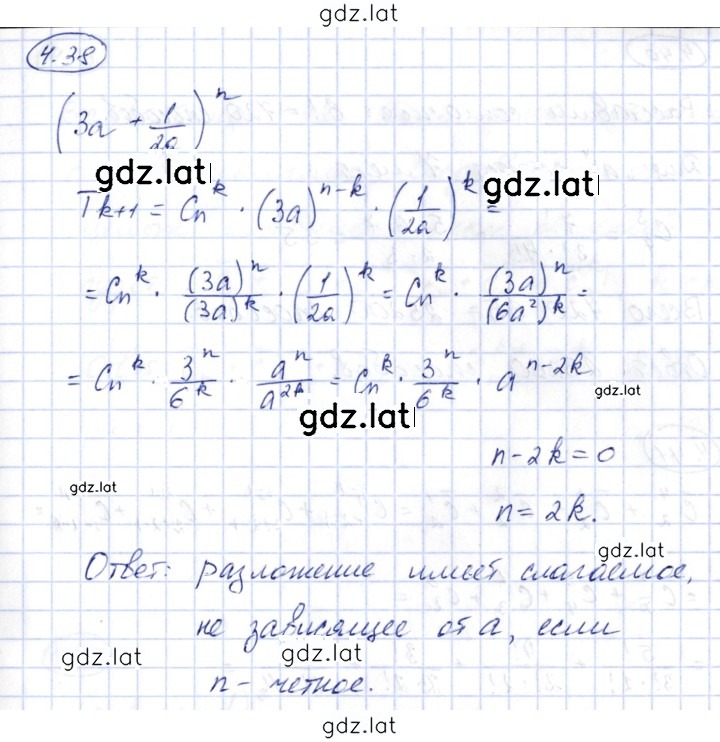 gdz.lat
4.38
(3a + 1/2a)^n
gdz.lat gdz.lat
T k+1 = Cn^k · (3a)^n-k · (1/2a)^k =
= Cn^k · (3a)^n/(3a)^k · (1/2a)^k = Cn^k · (3a)^n/(6a²)^k =
= Cn^k · 3^n/6^k · a^n/a^2k = Cn^k · 3^n/6^k · a^n-2k
gdz.lat gdz.lat
n-2k=0
gdz.lat
n=2k.
gdz.lat
Ответ: разложение имеет слагаемое,
не зависящее от a, если
gdz.lat gdz.lat
n - четное.
gdz.lat